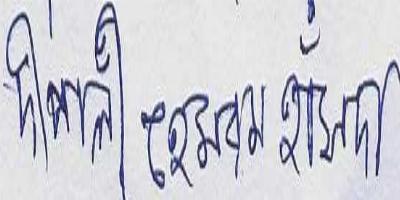 দীপালী হেমব্রম হাঁসদা